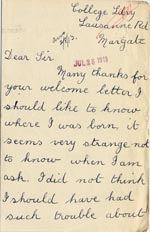 College Lierry
Lausanne Rd
Margate
JUL 28 1913
Dear Sir
Many thanks for
your welcome letter I
should like to know
where I was born, it
seems very strange not
to know when I am
ask. I did not think
I should have had
such trouble about